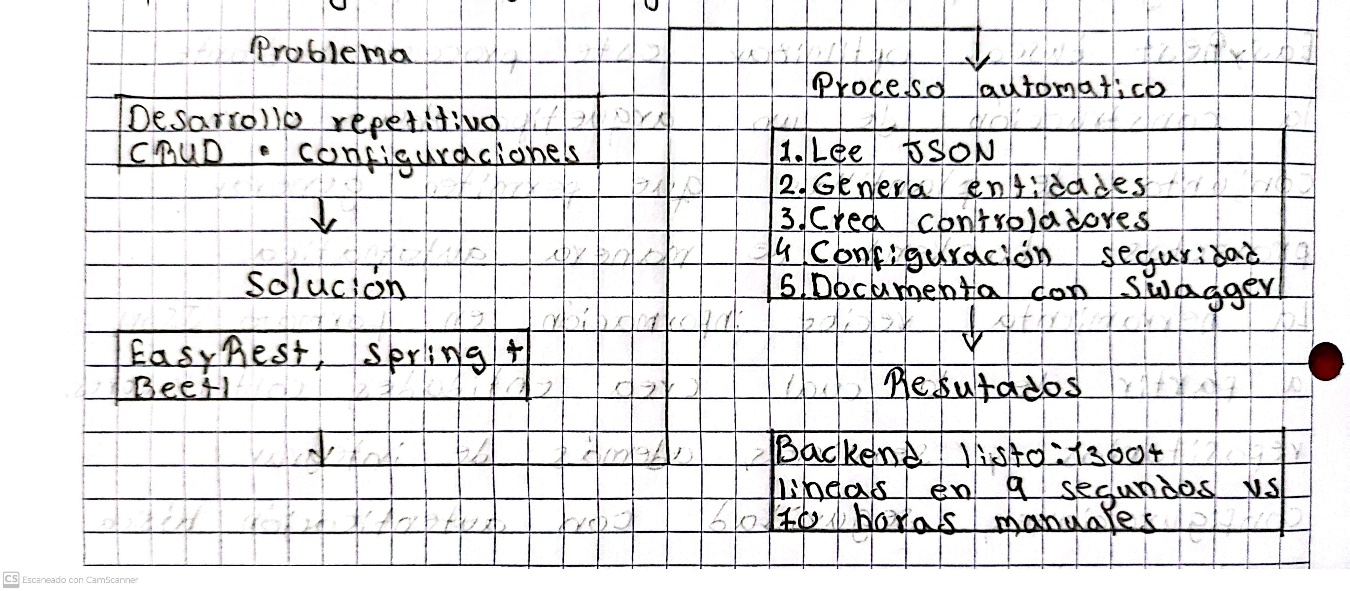 Problema
Desarrollo repetitivo
CRUD • configuraciones
Solución
EasyRest, Spring +
Beetl
Proceso automatico
1. Lee JSON
2. Genera entidades
3. Crea controladores
4 Configuración seguridad
5. Documenta con Swagger
Resutados
Backend listo: 1300+
líneas en 9 segundos vs
10 horas manuales
CS Escaneado con CamScanner